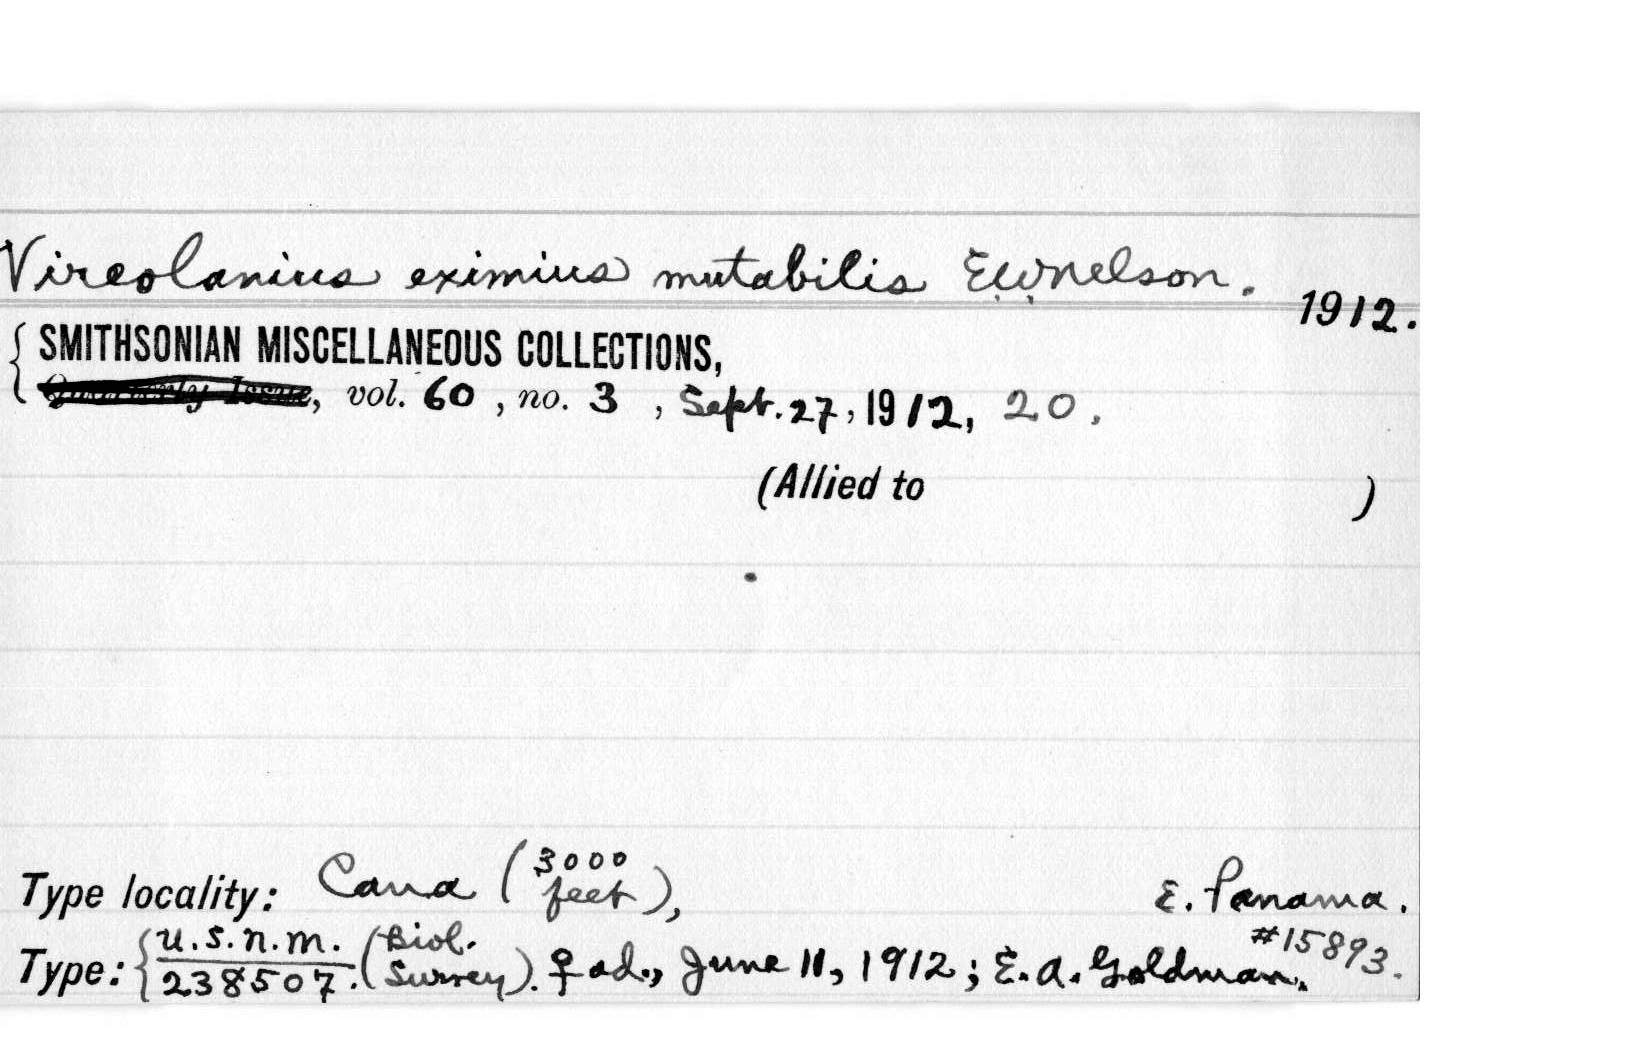 Vireolanius eximius mutabilis E.W. Nelson.
1912.
SMITHSONIAN MISCELLANEOUS COLLECTIONS,
Quarterly Issue, vol. 60, no. 3, Sept. 27, 1912, 20.
(Allied to )
Type locality: Cana (3000 feet), E. Panama.
#15893.
Type: { U.S.N.M. 238507. (Biol. Survey). ♀ ad., June 11, 1912; E. A. Goldman.